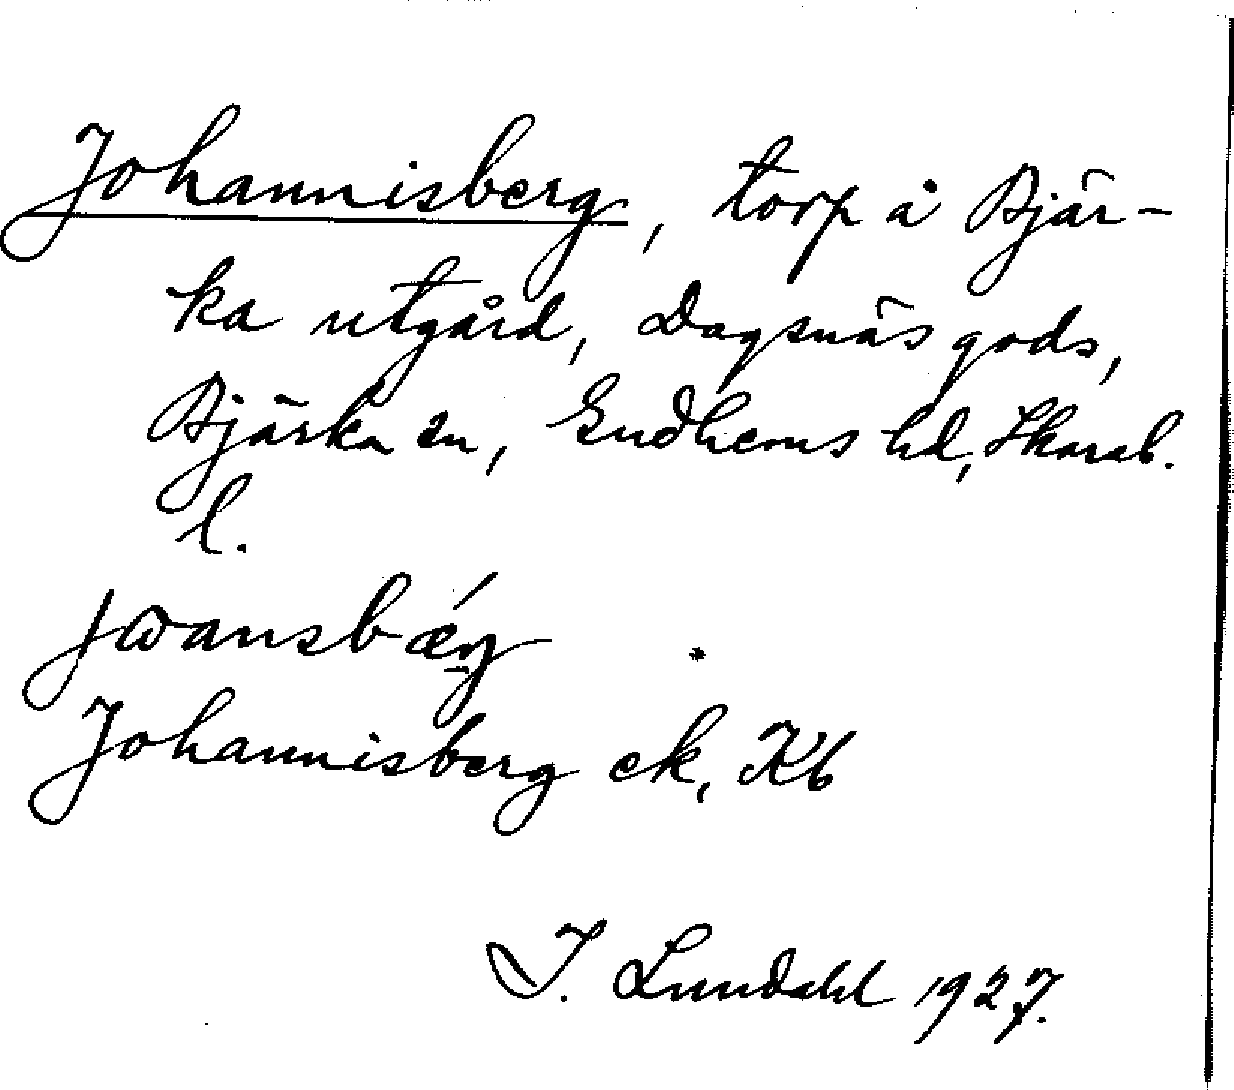 Johannisberg, torp å Bjär-
ka utgård, Dagsnäs gods,
Bjärka sn, Gudhems hd, Skarab.
l.
Johannisberg ek, Kb
I. Lundahl 1927.